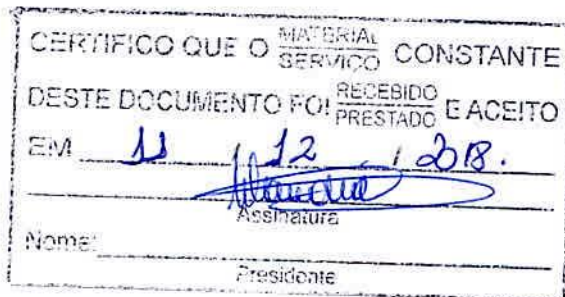 CERTIFICO QUE O MATERIAL/SERVIÇO CONSTANTE
DESTE DOCUMENTO FOI RECEBIDO/PRESTADO E ACEITO
EM 11 / 12 / 2018.
Assinatura
Nome:
Presidente